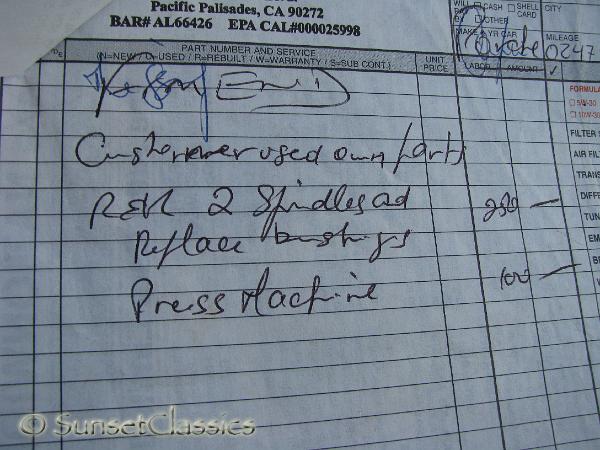 Pacific Palisades, CA 90272
BAR# AL66426 EPA CAL#000025998
WILL
CASH
SHELL CARD
CITY
OTHER
MAKE YR CAR
MILEAGE
Porsche
0247
PART NUMBER AND SERVICE
(N=NEW / O=USED / R=REBUILT / W=WARRANTY / S=SUB CONT.)
UNIT PRICE
LABOR
AMOUNT
FORMULA
5W-30
10W-30
FILTER
AIR FIL
TRANS
DIFFE
TUN
EM
Customer used own parts
R&R 2 Spindles ad 250 —
Replace bushings
Press Machine 100 —
© SunsetClassics